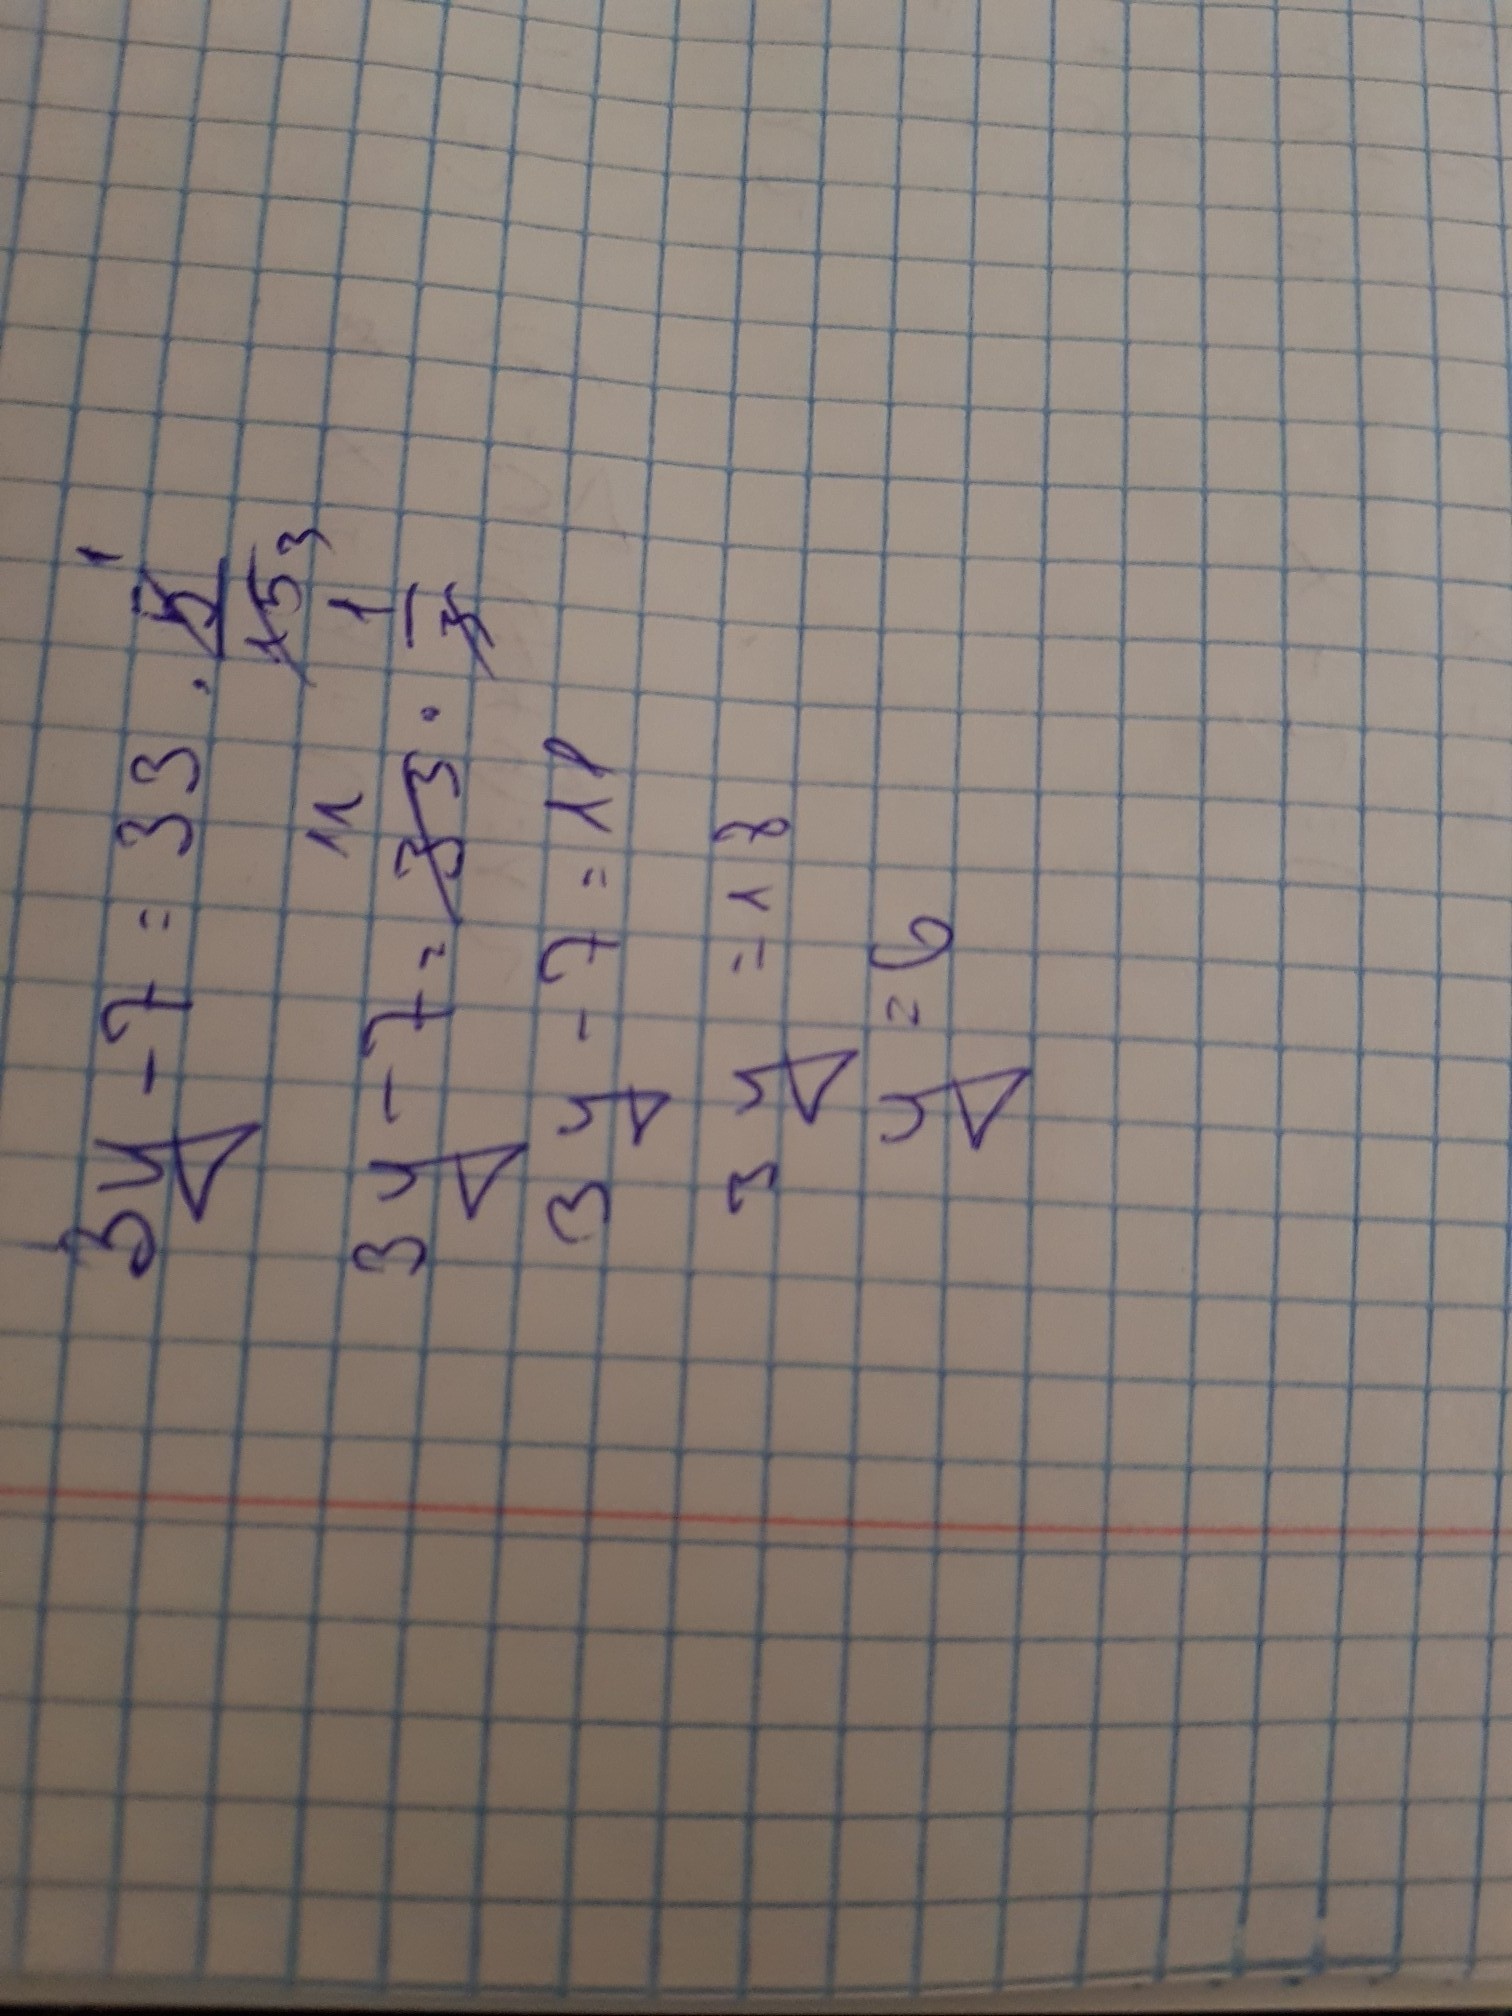 3y - 7 = 33 · 5/15 1 3
3y - 7 = 33 · 1/3 11
3y - 7 = 11
3y = 18
y = 6